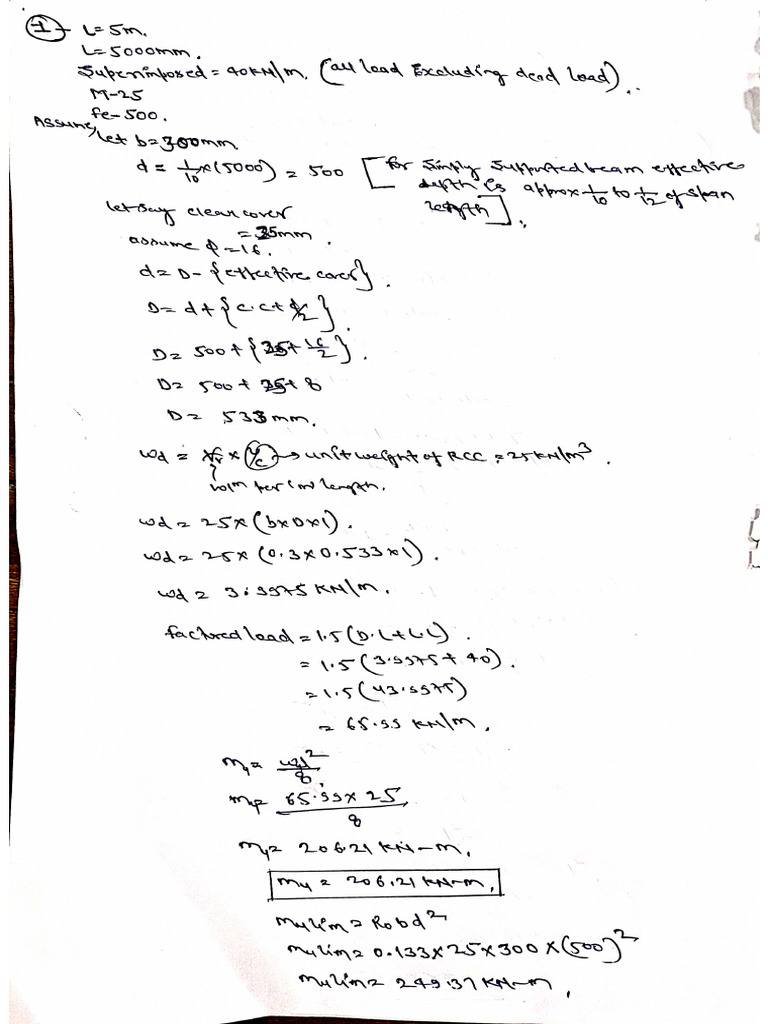 1 - L=5m.
L=5000mm.
Superimposed = 40KN/m. (all load Excluding dead load)..
M-25
fe-500.
Assume, let b=300mm
d = 1/10 x(5000) = 500 [for simply supported beam effective depth is approx 1/10 to 1/12 of span length].
let say clear cover = 25mm.
assume φ=16.
d= D- {effective cover}.
D= d+{c.c+ φ/2}.
D= 500+{25+ 16/2}.
D= 500+ 25+ 8
D= 533mm.
wd = x γc → unit weight of RCC = 25KN/m³.
volm per 1m length.
wd = 25x(bxDx1).
wd = 25x (0.3x0.533x1).
wd = 3.9975 KN/m.
factored load = 1.5(D.L+L.L).
= 1.5(3.9975+ 40).
= 1.5(43.9975)
= 65.99 KN/m.
Mu= wl²/8
Mu= 65.99x 25/8
Mu= 206.21 KN-m.
Mu = 206.21 KN-m.
Mulim= R0bd²
Mulim= 0.133x25x300x(500)²
Mulim= 249.37 KN-m.